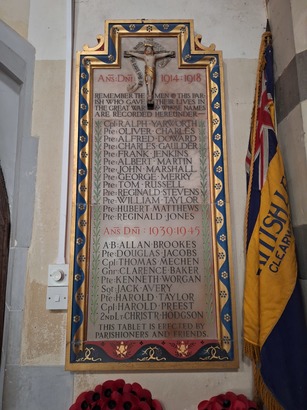 Ano Dni 1914-1918
REMEMBER THE MEN OF THIS PAR-
ISH WHO GAVE THEIR LIVES IN
THE GREAT WAR & WHOSE NAMES
ARE RECORDED HEREUNDER
Cpl RALPH YARWORTH
Pte OLIVER CHARLES
Pte ALFRED EDWARDS
Pte CHARLES GAULDER
Pte FRANK JENKINS
Pte ALBERT MARTIN
Pte JOHN MARSHALL
Pte GEORGE MERRY
Pte TOM RUSSELL
Pte REGINALD STEVENS
Pte WILLIAM TAYLOR
Pte HUBERT MATTHEWS
Pte REGINALD JONES
Ano Dni 1939-1945
A.B. ALLAN BROOKES
Pte DOUGLAS JACOBS
Cpl THOMAS MECHEN
Gnr CLARENCE BAKER
Pte KENNETH WORGAN
Sgt JACK AVERY
Pte HAROLD TAYLOR
Cpl HAROLD PREEST
2nd L. CHRISTR HODGSON
THIS TABLET IS ERECTED BY
PARISHIONERS AND FRIENDS